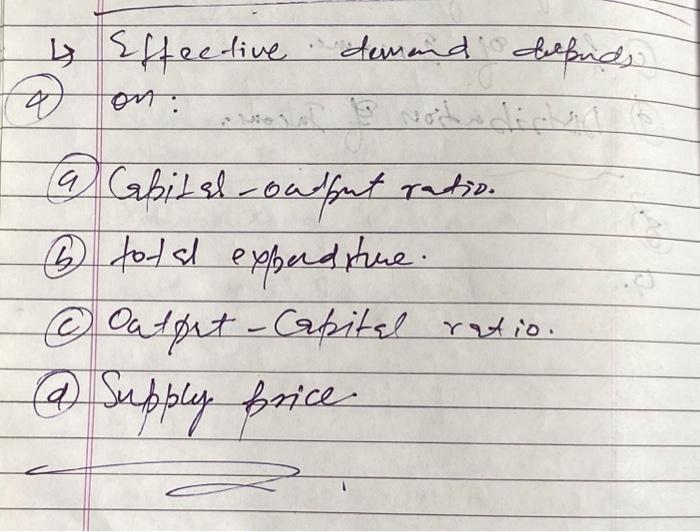 ↳ Effective demand depends
4 on :
a Capital-output ratio.
b total expenditure.
c Output-Capital ratio.
d Supply price.